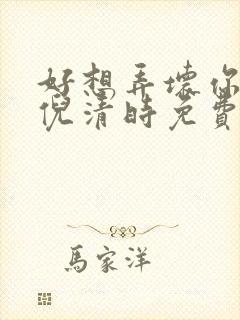 好想弄壞你
倪清時免費
馬家洋